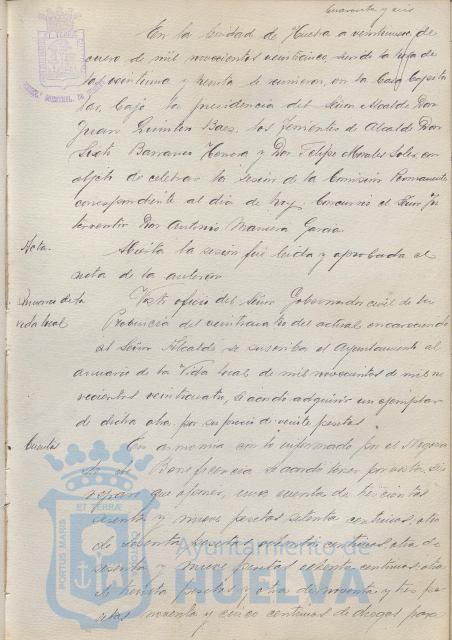 Cuarenta y seis
En la Ciudad de Huelva a veintinueve de
enero de mil novecientos veinticinco, siendo la hora de
las veintiuna y treinta se reunieron en la Casa Capitu
lar, bajo la presidencia del Señor Alcalde Don
Juan Quintero Baez, los Tenientes de Alcalde Don
Barranco y Don Felipe Morales con
objeto de celebrar la sesión de la Comisión Permanente
correspondiente al día de hoy. Concurrió el Señor In
terventor Don Antonio García.
Acta.
Abierta la sesión fué leida y aprobada el
acta de la anterior.
Anuario de la
vida local
Visto oficio del Señor Gobernador civil de la
Provincia del veinticuatro del actual encareciendo
al Señor Alcalde se suscriba el Ayuntamiento al
anuario de la Vida local de mil novecientos de mil no
vecientos veinticuatro, se acordó adquirir un ejemplar
de dicha obra por su precio de veinte pesetas.
Cuentas
En armonia con lo informado por el Negocia
do de Beneficencia se acordó tener por vista, sin
reparo que oponer, una cuenta de trescientas
sesenta y nueve pesetas setenta centimos, otra
de pesetas ochenta centimos, otra de
sesenta y nueve pesetas centimos, otra
de treinta pesetas y otra de noventa y tres pe
setas noventa y cinco centimos de drogas para
PORTUS MARIS
ET TERRÆ
Ayuntamiento de
HUELVA